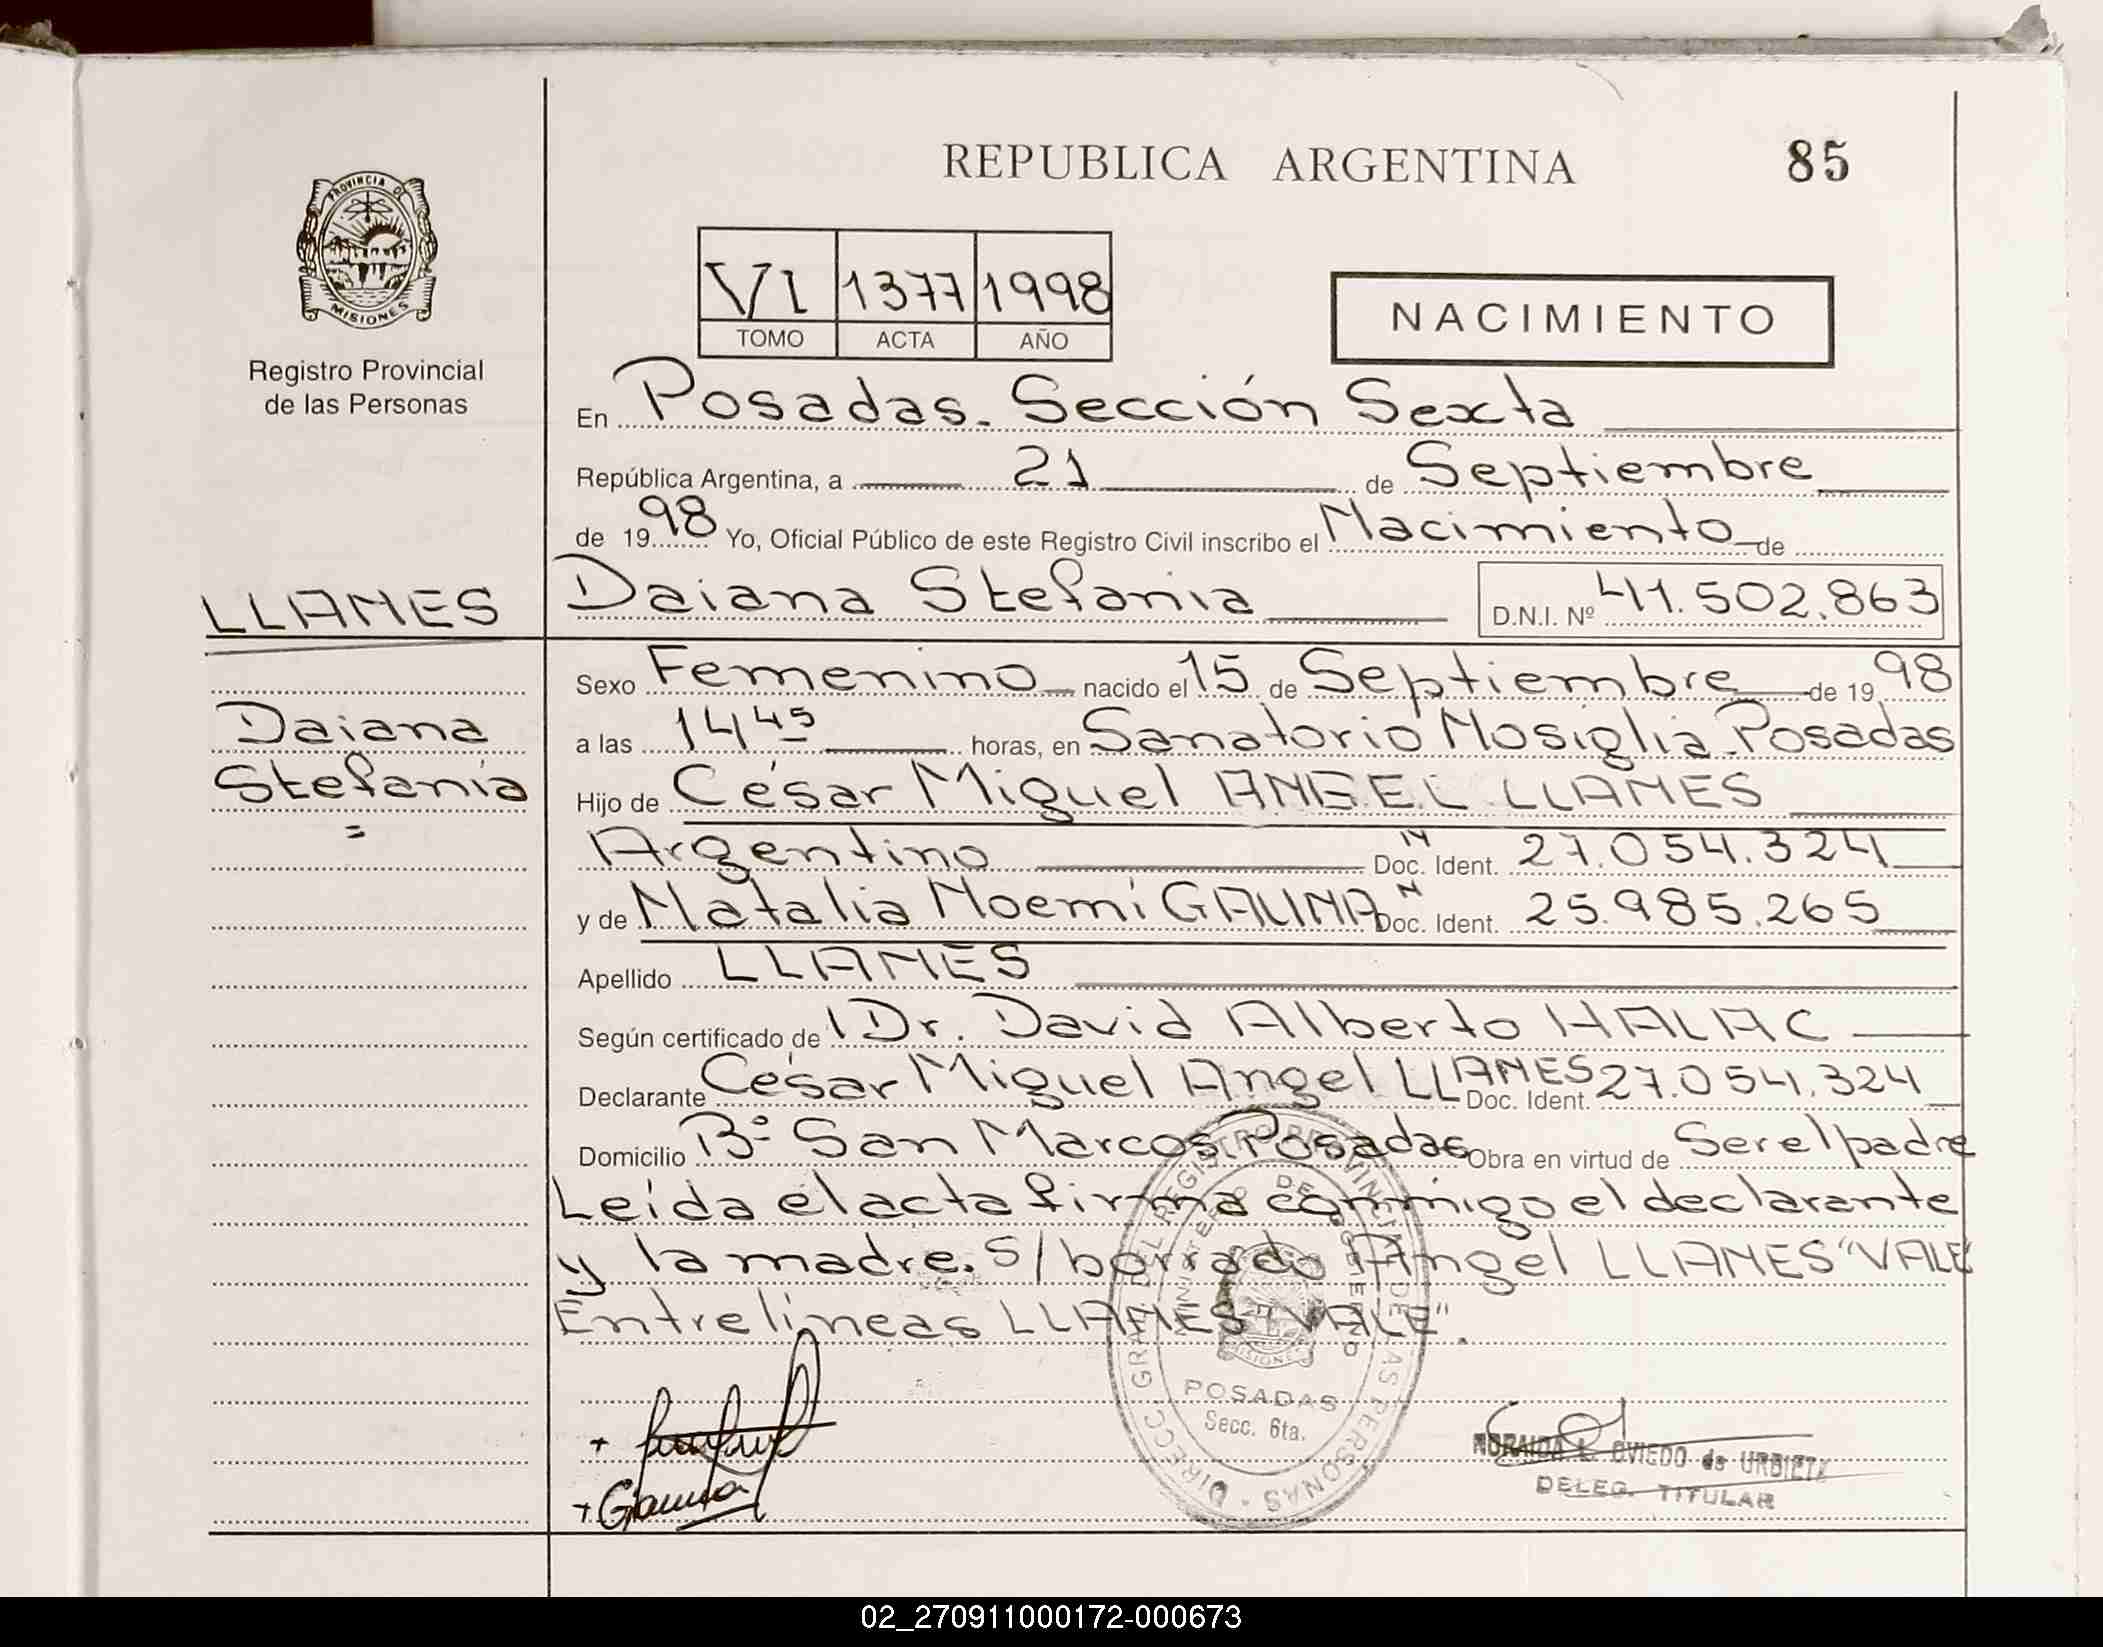 REPUBLICA ARGENTINA
85
PROVINCIA DE
MISIONES
Registro Provincial
de las Personas
VI 1377 1998
TOMO ACTA AÑO
NACIMIENTO
En Posadas. Sección Sexta
República Argentina, a 21 de Septiembre
de 1998 Yo, Oficial Público de este Registro Civil inscribo el Nacimiento de
LLANES
Daiana Stefania D.N.I. Nº 41.502.863
Daiana
Stefanía
Sexo Femenino nacido el 15 de Septiembre de 1998
a las 14 45 horas, en Sanatorio Nosiglia Posadas
Hijo de César Miguel ANGEL LLANES
Argentino N Doc. Ident. 27.054.324
y de Natalia Noemí GAUNA N Doc. Ident. 25.985.265
Apellido LLANES
Según certificado de Dr. David Alberto HALAC
Declarante César Miguel Angel LLANES Doc. Ident. 27.054.324
Domicilio Bº San Marcos Posadas Obra en virtud de Ser el padre
Leída el acta firma conmigo el declarante
y la madre. S/ borrado Angel LLANES "VALE"
Entrelíneas LLANES "VALE".
DIRECC. GRAL. DEL REGISTRO PROVINCIAL DE LAS PERSONAS
MINISTERIO DE GOBIERNO
MISIONES
POSADAS
Secc. 6ta.
NORAIDA L. OVIEDO de URBIETA
DELEG. TITULAR
02_270911000172-000673